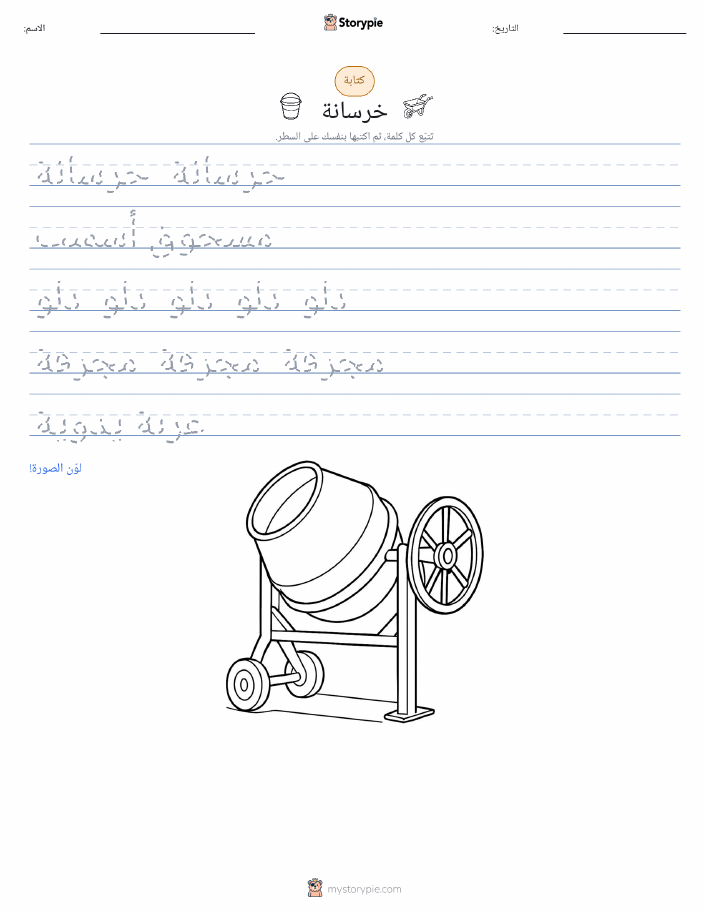 Storypie
الاسم:
التاريخ:
كتابة
خرسانة
تتبّع كل كلمة، ثم اكتبها بنفسك على السطر.
خرسانة خرسانة
مسحوق أسمنت
دلو دلو دلو دلو دلو
مجرفة مجرفة مجرفة
عربة يدوية
لوّن الصورة!
mystorypie.com